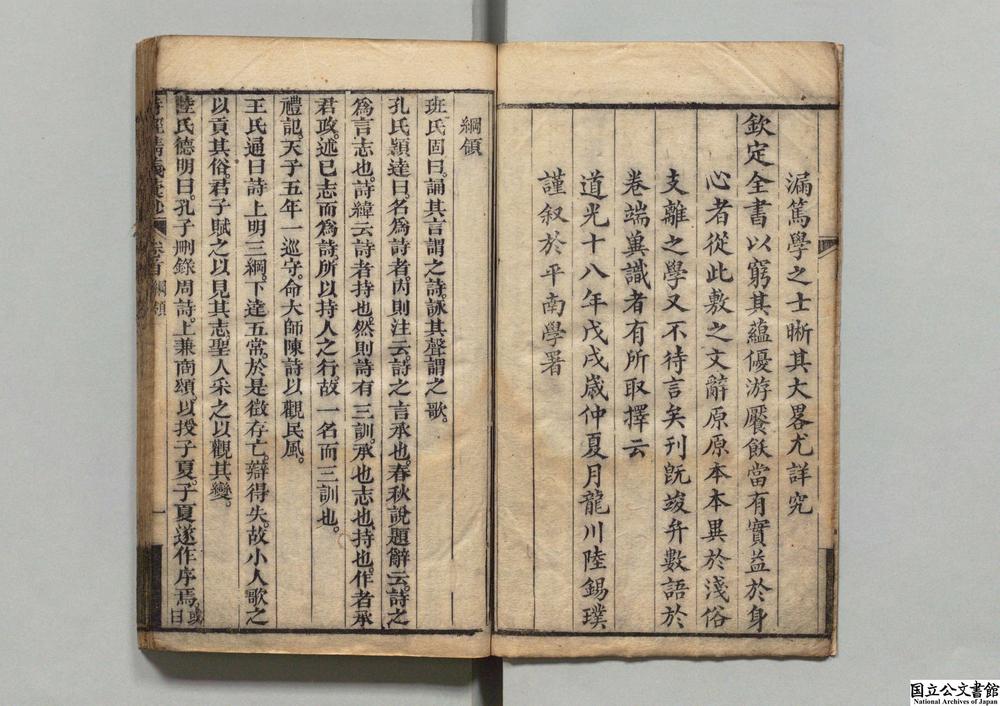 漏篤學之士晰其大畧尤詳究
欽定全書以窮其蘊優游饜飫當有實益於身
心者從此敷之文辭原原本本異於淺俗
支離之學又不待言矣刊旣竣弁數語於
卷端冀識者有所取擇云
道光十八年戊戌歲仲夏月龍川陸錫璞
謹叙於平南學署
綱領
班氏固曰。誦其言謂之詩。詠其聲謂之歌。
孔氏頴達曰。名爲詩者。內則注云。詩之言承也。春秋說題辭云。詩之
爲言志也。詩緯云詩者持也然則詩有三訓。承也志也持也。作者承
君政。述已志而爲詩。所以持人之行。故一名而三訓也。
禮記。天子五年一巡守。命大師陳詩以觀民風。
王氏通曰詩上明三綱。下達五常。於是徵存亡。辯得失。故小人歌之
以貢其俗。君子賦之以見其志。聖人采之以觀其變。
陸氏德明曰。孔子刪錄周詩。上兼商頌。以授子夏。子夏遂作序焉。或曰
詩經精義彙鈔 卷首 綱領 一
国立公文書館
National Archives of Japan